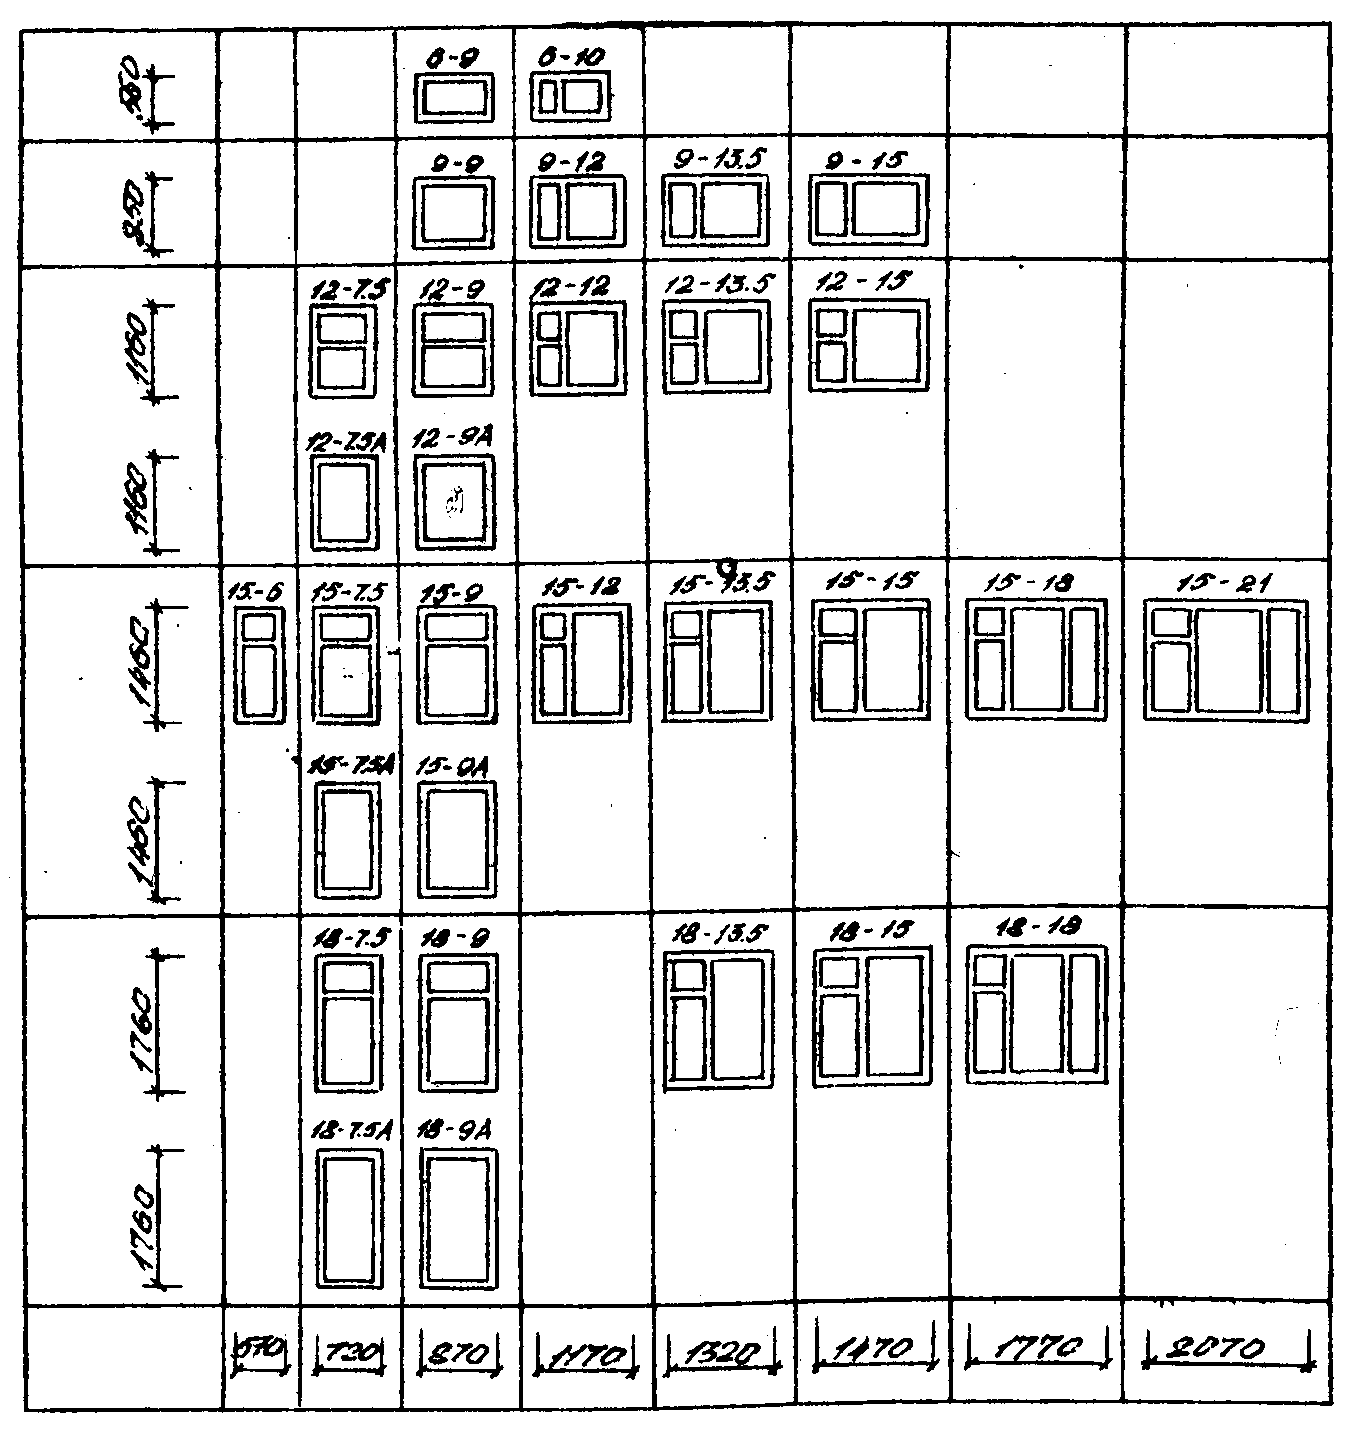 560
6-9 6-10
860
9-9 9-12 9-13.5 9-15
1160
12-7.5 12-9 12-12 12-13.5 12-15
1160
12-7.5А 12-9А
1460
15-6 15-7.5 15-9 15-12 15-13.5 15-15 15-18 15-21
1460
15-7.5А 15-9А
1760
18-7.5 18-9 18-13.5 18-15 18-18
1760
18-7.5А 18-9А
570 720 870 1170 1320 1470 1770 2070